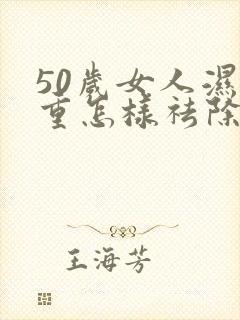 50歲女人濕
重怎樣祛除
王海芳